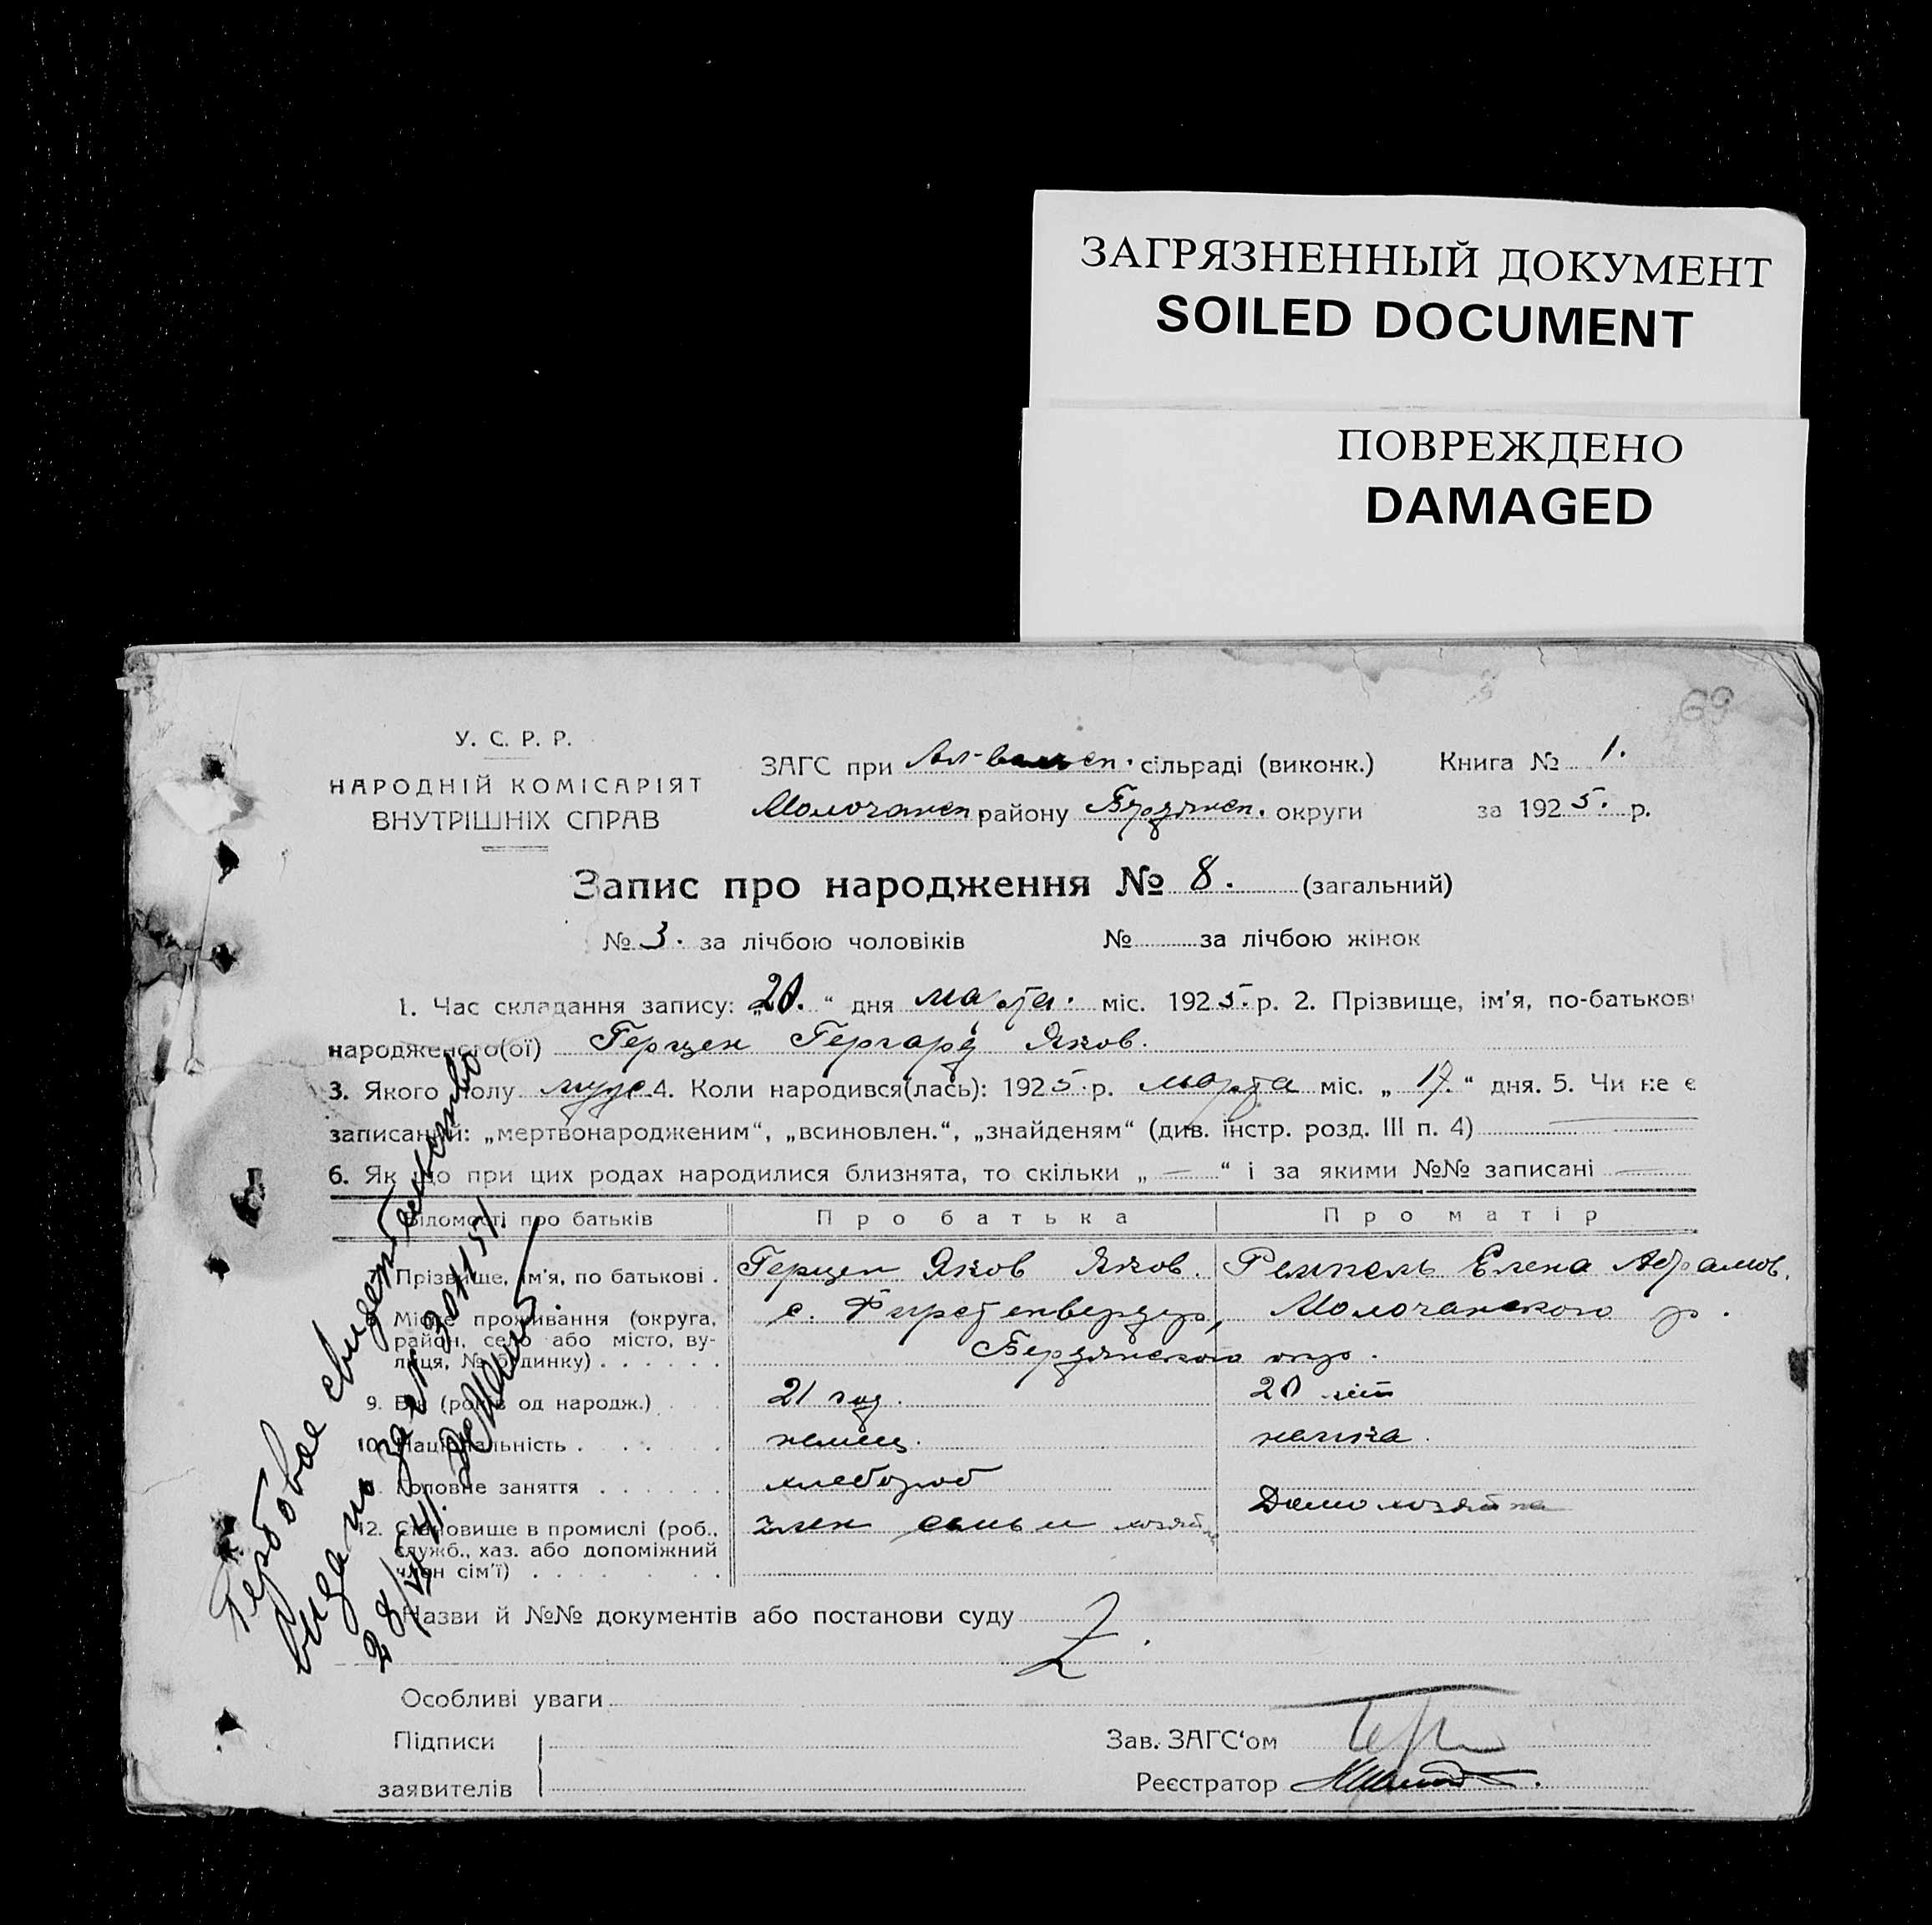 ЗАГРЯЗНЕННЫЙ ДОКУМЕНТ
SOILED DOCUMENT
ПОВРЕЖДЕНО
DAMAGED
69
У. С. Р. Р.
НАРОДНІЙ КОМІСАРІЯТ
ВНУТРІШНІХ СПРАВ
ЗАГС при сільраді (виконк.) Книга № 1.
Молочанск. району Бердянск. округи за 1925. р.
Запис про народження № 8. (загальний)
№ 3. за лічбою чоловіків № за лічбою жінок
1. Час складання запису: „20.“ дня марта. міс. 1925. р. 2. Прізвище, ім'я, по-батькові
народженого(ої) Герцен Гергард Яков.
3. Якого полу муж. 4. Коли народився(лась): 1925. р. марта міс. „17.“ дня. 5. Чи не є
записаний: „мертвонародженим“, „всиновлен.“, „знайденям“ (див. інстр. розд. III п. 4)
6. Як що при цих родах народилися близнята, то скільки „—“ і за якими №№ записані —
Відомості про батьків Про батька Про матір
Прізвище, ім'я, по батькові . Герцен Яков Яков. Ремпель Елена Абрамов.
Місце проживання (округа, район, село або місто, вулиця, № будинку) с. Фирстенвердер, Молочанского р.
Бердянского окр.
9. Вік (років од народж.) 21 год. 20 лет
10. Національність немец. немка.
Головне заняття хлебороб Домохозяйка
12. Становище в промислі (роб., член семьи хозяйн
служб., хаз. або допоміжний
член сім'ї)
Назви й №№ документів або постанови суду Z.
Особливі уваги
Підписи Зав. ЗАГС‘ом
заявителів Реєстратор
Гербовое свидетельство
выдано за №
28/